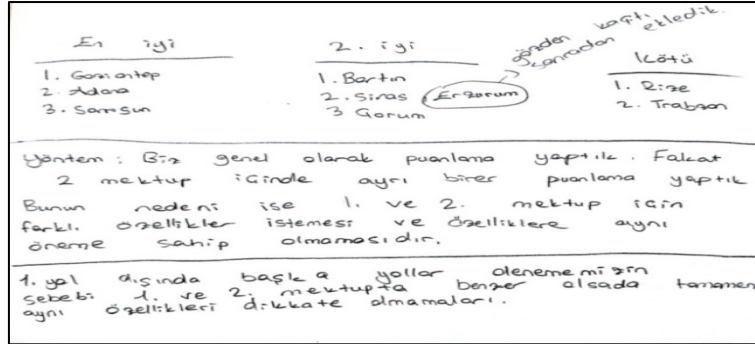 En iyi
1. Gaziantep
2. Adana
3. Samsun
2. iyi
1. Bartın
2. Sivas Erzurum
3 Çorum
gözden kaçtı.
sonradan ekledik.
Kötü
1. Rize
2. Trabzon
Yöntem: Biz genel olarak puanlama yaptık. Fakat
2 mektup içinde ayrı birer puanlama yaptık
Bunun nedeni ise 1. ve 2. mektup için
farklı özellikler istemesi ve özelliklere aynı
öneme sahip olmamasıdır.
1. yol dışında başka yollar denenememizin
sebebi 1. ve 2. mektupta benzer olsada tamamen
aynı özellikleri dikkate almamaları.